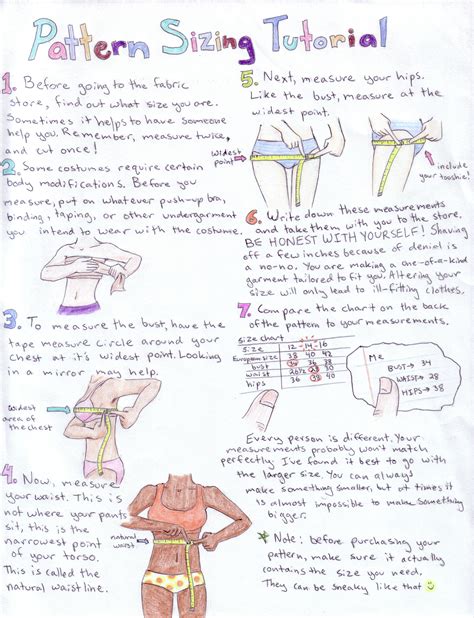 Pattern Sizing Tutorial
1. Before going to the fabric
store, find out what size you are.
Sometimes it helps to have someone
help you. Remember, measure twice,
and cut once!
2. Some costumes require certain
body modifications. Before you
measure, put on whatever push-up bra,
binding, taping, or other undergarment
you intend to wear with the costume.
3. To measure the bust, have the
tape measure circle around your
chest at it's widest point. Looking
in a mirror may help.
widest
area of
the chest
4. Now, measure
your waist. This is
not where your pants
sit, this is the
narrowest point
of your torso.
This is called the
natural waistline.
natural
waist
5. Next, measure your hips.
Like the bust, measure at the
widest point.
widest
point
include
your tooshie!
6. Write down these measurements
and take them with you to the store.
BE HONEST WITH YOURSELF! Shaving
off a few inches because of denial is
a no-no. You are making a one-of-a-kind
garment tailored to fit you. Altering your
size will only lead to ill-fitting clothes.
7. Compare the chart on the back
of the pattern to your measurements.
size chart
size 12 -14 -16
European size 38 40 42
bust 34 36 38
waist 26½ 28 30
hips 36 38 40
Me
BUST→ 34
WAIST→ 28
HIPS→ 38
Every person is different. Your
measurements probably won't match
perfectly. I've found it best to go with
the larger size. You can always
make something smaller, but at times it
is almost impossible to make something
bigger.
* Note: before purchasing your
pattern, make sure it actually
contains the size you need.
They can be sneaky like that ☺